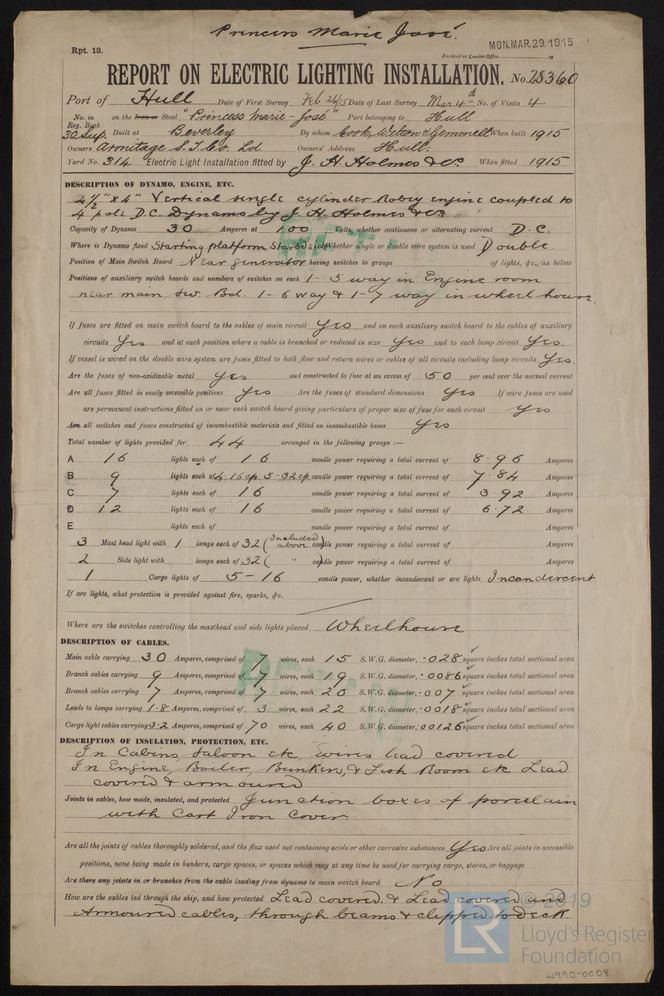 Princess Marie José.
Rpt. 13.
MON. MAR. 29. 1915
Received at London Office
REPORT ON ELECTRIC LIGHTING INSTALLATION. No. 28360
Port of Hull Date of First Survey Feb 26/15 Date of Last Survey Mar 4th No. of Visits 4
No. in Reg. Book 30 Sup. on the Iron or Steel "Princess Marie-José" Port belonging to Hull
Built at Beverley By whom Cook, Welton & Gemmell When built 1915
Owners Armitage S.T. Co. Ld Owners' Address Hull.
Yard No. 314 Electric Light Installation fitted by J. H. Holmes & Co. When fitted 1915
DESCRIPTION OF DYNAMO, ENGINE, ETC.
4½" x 4" Vertical single cylinder Robey engine coupled to
4 pole D.C. Dynamo by J. H. Holmes & Co
Capacity of Dynamo 30 Amperes at 100 Volts, whether continuous or alternating current D.C.
Where is Dynamo fixed Starting platform Starbd side Whether single or double wire system is used Double
Position of Main Switch Board Near generator having switches to groups of lights, &c., as below
Positions of auxiliary switch boards and numbers of switches on each 1- 5 way in Engine room
near main sw. Bd. 1- 6 way & 1-7 way in wheel house.
If fuses are fitted on main switch board to the cables of main circuit Yes and on each auxiliary switch board to the cables of auxiliary
circuits Yes and at each position where a cable is branched or reduced in size Yes and to each lamp circuit Yes.
If vessel is wired on the double wire system are fuses fitted to both flow and return wires or cables of all circuits including lamp circuits Yes.
Are the fuses of non-oxidizable metal Yes and constructed to fuse at an excess of 50 per cent over the normal current
Are all fuses fitted in easily accessible positions Yes Are the fuses of standard dimensions Yes If wire fuses are used
are permanent instructions fitted on or near each switch board giving particulars of proper size of fuse for each circuit Yes
Are all switches and fuses constructed of incombustible materials and fitted on incombustible bases Yes
Total number of lights provided for 44 arranged in the following groups :—
A 16 lights each of 16 candle power requiring a total current of 8.96 Amperes
B 9 lights each of 4.16 cp. 5-32 cp. candle power requiring a total current of 7.84 Amperes
C 7 lights each of 16 candle power requiring a total current of 3.92 Amperes
D 12 lights each of 16 candle power requiring a total current of 6.72 Amperes
E lights each of candle power requiring a total current of Amperes
3 Mast head light with 1 lamps each of 32 (Included above) candle power requiring a total current of Amperes
2 Side light with lamps each of 32 ( " ) candle power requiring a total current of Amperes
1 Cargo lights of 5-16 candle power, whether incandescent or arc lights Incandescent.
If arc lights, what protection is provided against fire, sparks, &c.
Where are the switches controlling the masthead and side lights placed Wheelhouse
DESCRIPTION OF CABLES.
Main cable carrying 30 Amperes, comprised of 7 wires, each 15 S.W.G. diameter, .028 square inches total sectional area
Branch cables carrying 9 Amperes, comprised of 7 wires, each 19 S.W.G. diameter, .0086 square inches total sectional area
Branch cables carrying 7 Amperes, comprised of 7 wires, each 20 S.W.G. diameter, .007 square inches total sectional area
Leads to lamps carrying 1.8 Amperes, comprised of 3 wires, each 22 S.W.G. diameter, .0018 square inches total sectional area
Cargo light cables carrying 3.2 Amperes, comprised of 70 wires, each 40 S.W.G. diameter, .00126 square inches total sectional area
DESCRIPTION OF INSULATION, PROTECTION, ETC.
In Cabins, Saloon etc, wires lead covered
In Engine, Boiler, Bunkers, & Fish Room etc Lead
covered & armoured
Joints in cables, how made, insulated, and protected Junction boxes of porcelain
with Cast Iron Cover.
Are all the joints of cables thoroughly soldered, and the flux used not containing acids or other corrosive substances Yes Are all joints in accessible
positions, none being made in bunkers, cargo spaces, or spaces which may at any time be used for carrying cargo, stores, or baggage
Are there any joints in or branches from the cable leading from dynamo to main switch board No
How are the cables led through the ship, and how protected Lead covered & Lead covered and
Armoured cables, through beams & clipped to deck.
© 2019
LR
Lloyd's Register
Foundation
W990-0008